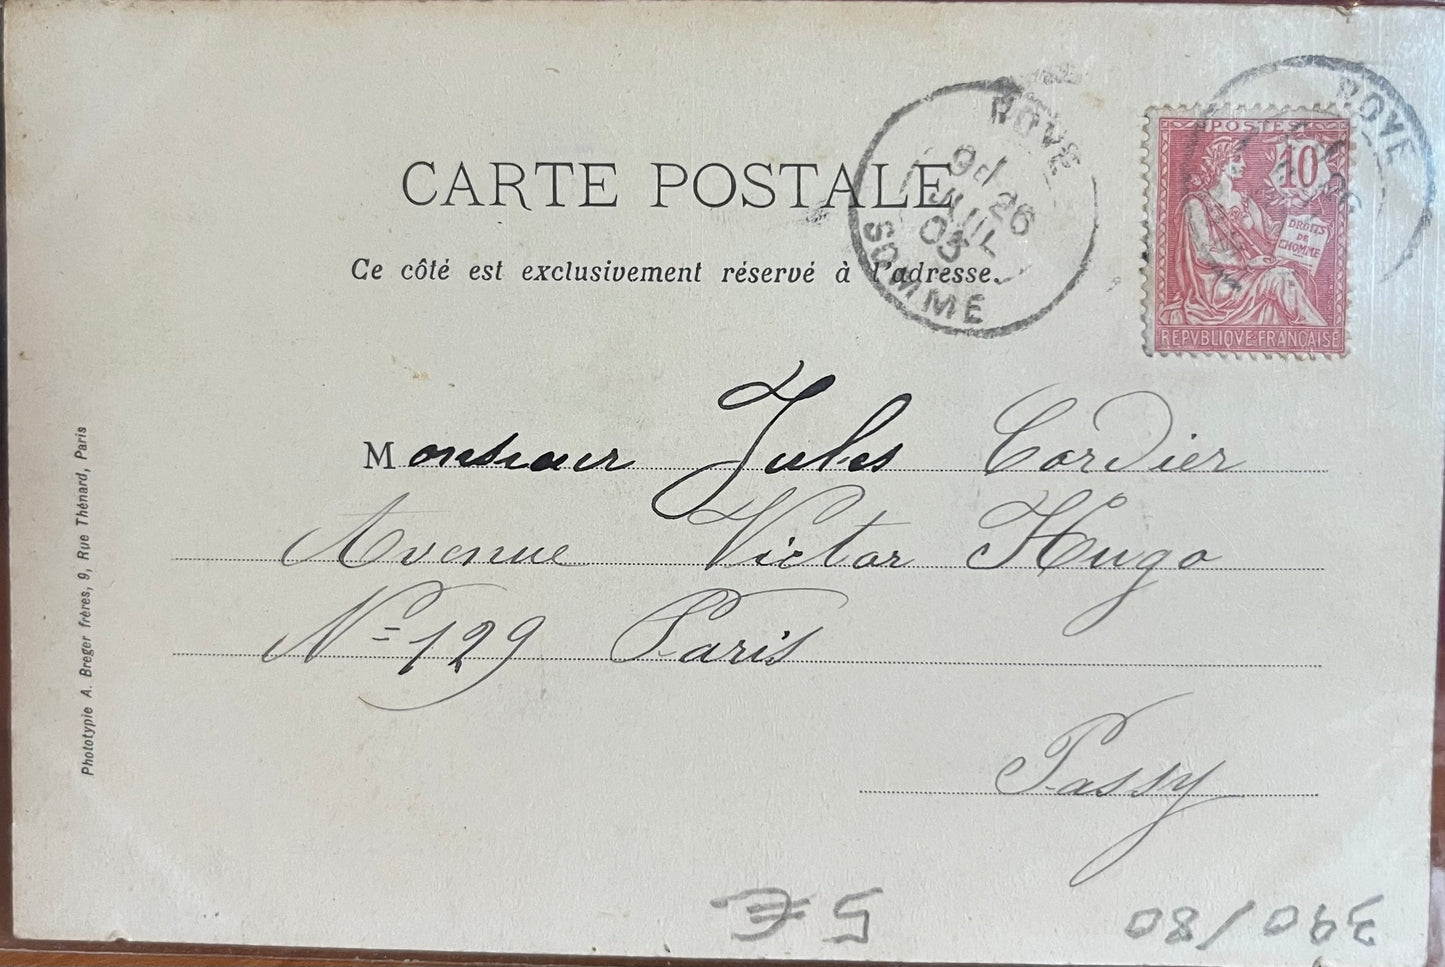 CARTE POSTALE
Ce côté est exclusivement réservé à l'adresse.
ROYE
26
JUIL
03
SOMME
POSTES
10
DROITS
DE
L'HOMME
REPVBLIQVE FRANÇAISE
ROYE
Monsieur Jules Cordier
Avenue Victor Hugo
No 129 Paris
Passy
Phototypie A. Breger frères, 9, Rue Thénard, Paris
5 €
390/80